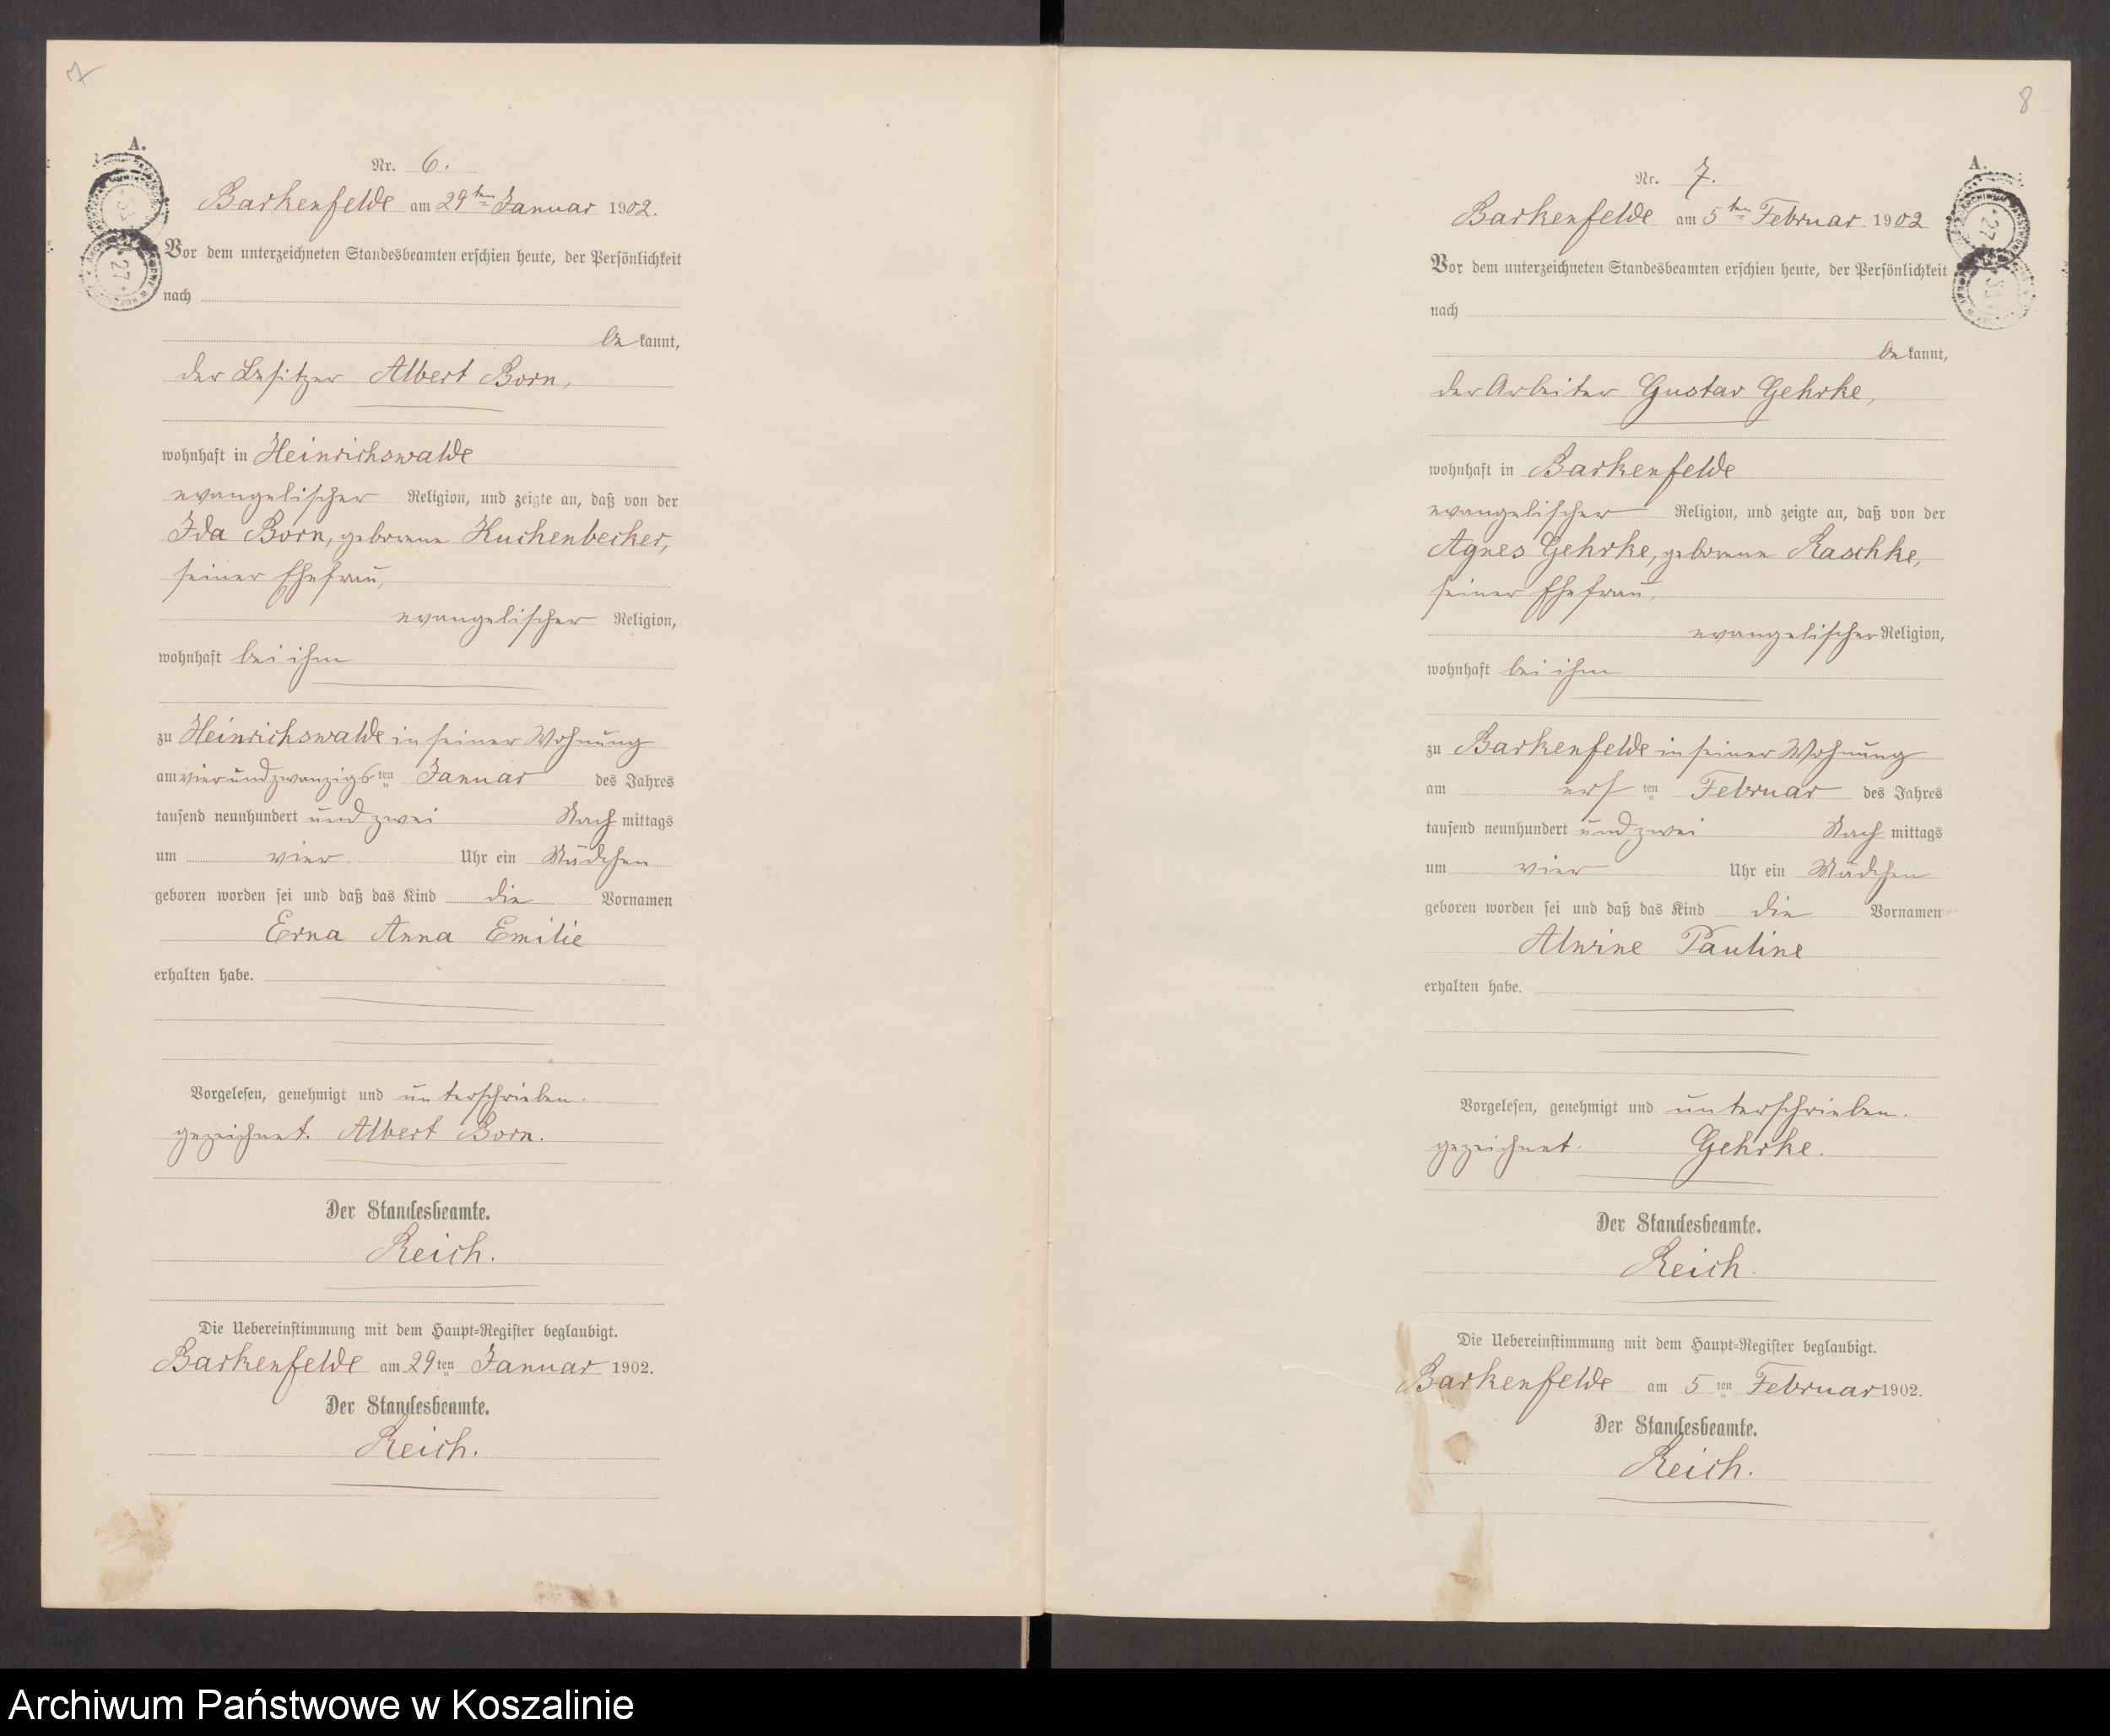 7
A.
Nr. 6.
Barkenfelde am 29ten Januar 1902.
Vor dem unterzeichneten Standesbeamten erschien heute, der Persönlichkeit
nach
be kannt,
der Besitzer Albert Born,
wohnhaft in Heinrichswalde
evangelischer Religion, und zeigte an, daß von der
Ida Born, geborene Kuchenbecker,
seiner Ehefrau,
evangelischer Religion,
wohnhaft bei ihm
zu Heinrichswalde in seiner Wohnung
am vierundzwanzigsten Januar des Jahres
tausend neunhundert und zwei Nach mittags
um vier Uhr ein Mädchen
geboren worden sei und daß das Kind die Vornamen
Erna Anna Emilie
erhalten habe.
Vorgelesen, genehmigt und unterschrieben.
gezeichnet. Albert Born.
Der Standesbeamte.
Reich.
Die Uebereinstimmung mit dem Haupt-Register beglaubigt.
Barkenfelde am 29ten Januar 1902.
Der Standesbeamte.
Reich.
8
A.
Nr. 7.
Barkenfelde am 5ten Februar 1902
Vor dem unterzeichneten Standesbeamten erschien heute, der Persönlichkeit
nach
be kannt,
der Arbeiter Gustav Gehrke,
wohnhaft in Barkenfelde
evangelischer Religion, und zeigte an, daß von der
Agnes Gehrke, geborene Raschke,
seiner Ehefrau,
evangelischer Religion,
wohnhaft bei ihm
zu Barkenfelde in seiner Wohnung
am ersten Februar des Jahres
tausend neunhundert und zwei Nach mittags
um vier Uhr ein Mädchen
geboren worden sei und daß das Kind die Vornamen
Alwine Pauline
erhalten habe.
Vorgelesen, genehmigt und unterschrieben.
gezeichnet. Gehrke.
Der Standesbeamte.
Reich.
Die Uebereinstimmung mit dem Haupt-Register beglaubigt.
Barkenfelde am 5ten Februar 1902.
Der Standesbeamte.
Reich.
Archiwum Państwowe w Koszalinie